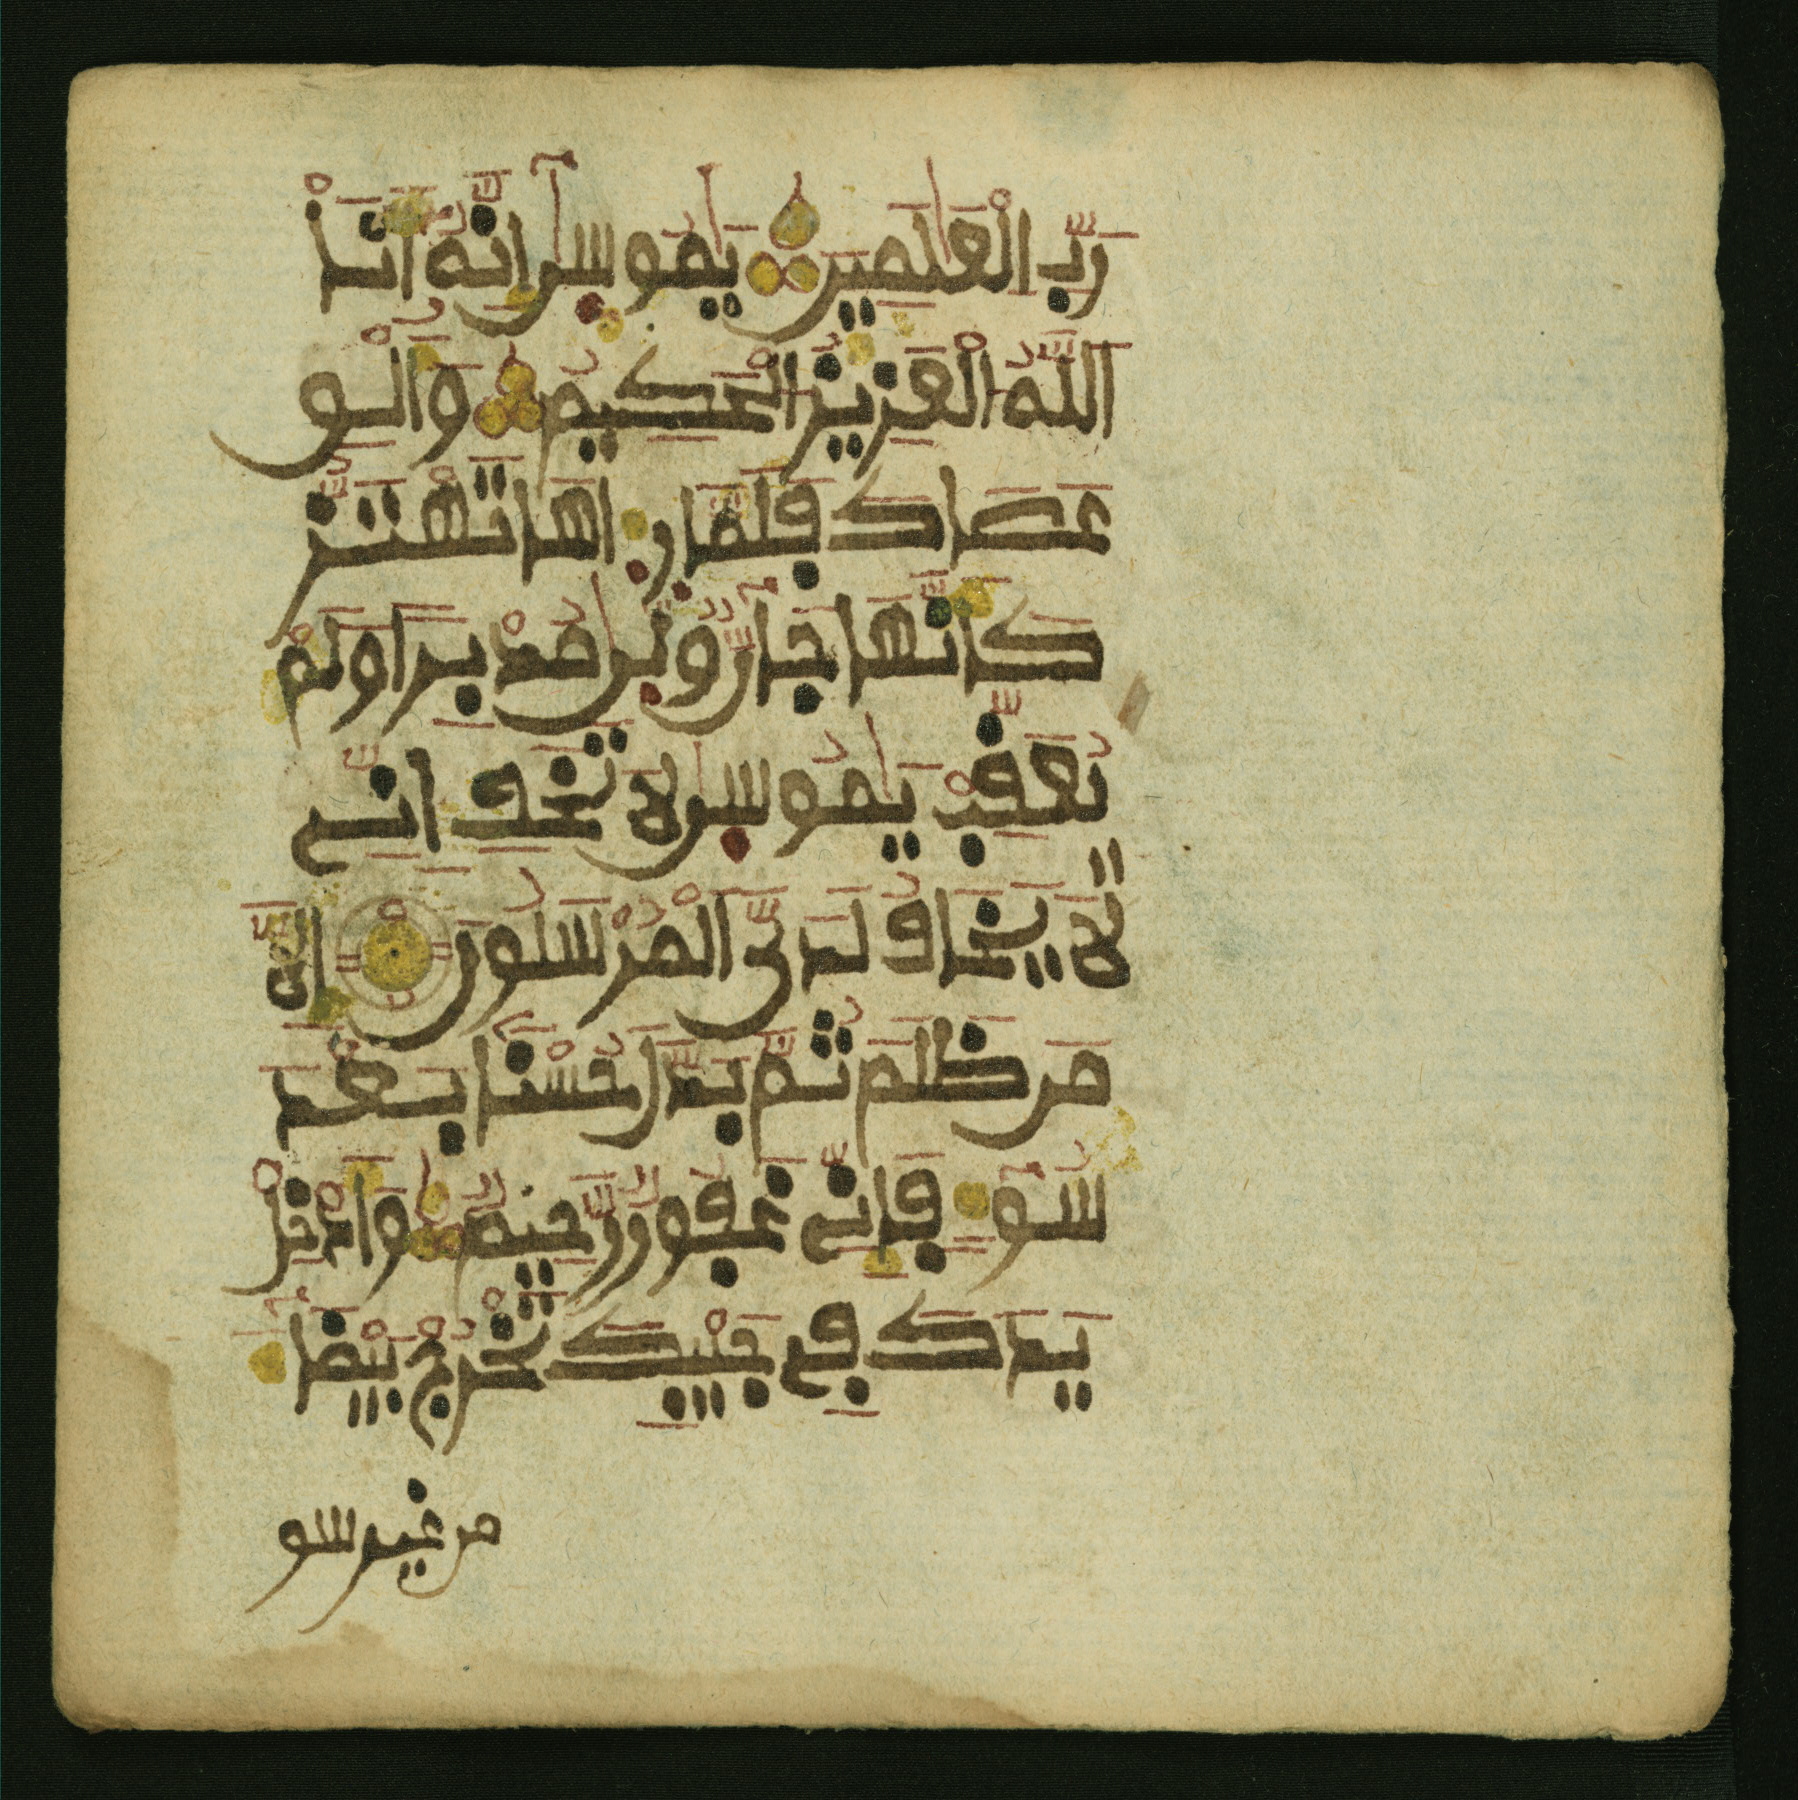 رَبِّ الْعَٰلَمِينَ يَٰمُوسَىٰٓ إِنَّهُۥٓ أَنَا
اللَّهُ الْعَزِيزُ الْحَكِيمُ وَأَلْقِ
عَصَاكَ فَلَمَّا رَءَاهَا تَهْتَزُّ
كَأَنَّهَا جَآنٌّ وَلَّىٰ مُدْبِرًا وَلَمْ
يُعَقِّبْ يَٰمُوسَىٰ لَا تَخَفْ إِنِّے
لَا يَخَافُ لَدَيَّ الْمُرْسَلُونَ إِلَّا
مَن ظَلَمَ ثُمَّ بَدَّلَ حُسْنًا بَعْدَ
سُوٓءٍ فَإِنِّے غَفُورٌ رَّحِيمٌ وَأَدْخِلْ
يَدَكَ فِے جَيْبِكَ تَخْرُجْ بَيْضَآءَ
من غير سو